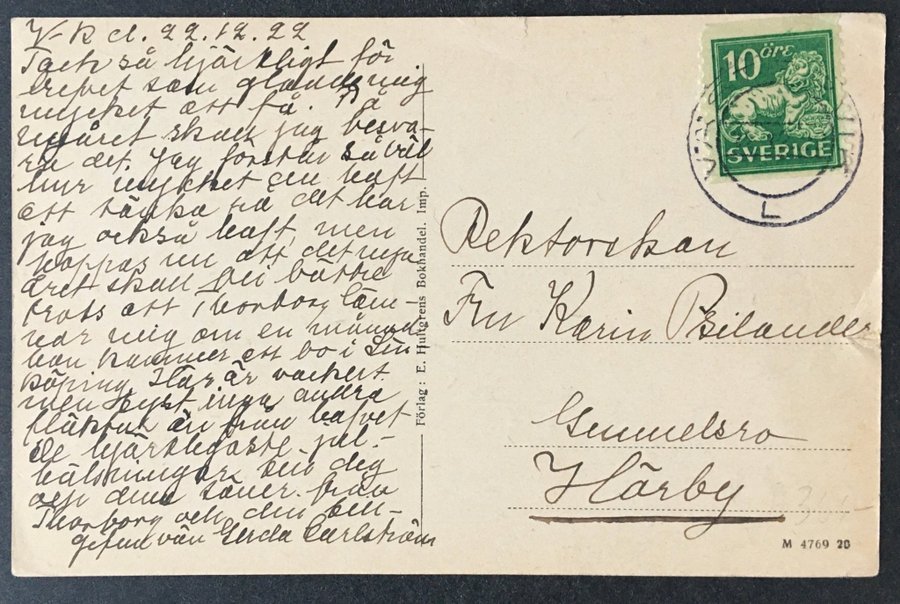 V-k d. 22.12.22
Tack så hjärtligt för
brefvet som gladde mig
mycket att få. På
nyåret skall jag besva-
ra det. Jag förstår så väl
hur mycket du haft
att tänka på det har
jag också haft, men
hoppas nu att det nya
året skall bli bättre
trots att Thorborg läm-
nar mig om en månad
hon kommer att bo i Lin
köping. Här är vackert
men blåst inga andra
fläktar än från hafvet
De hjärtligaste jul-
hälsningar till dig
och dina söner från
Thorborg och din till-
gifna vän Gerda Carlström
Förlag: E. Hultgrens Bokhandel. Imp.
10 öre
SVERIGE
L
Rektorskan
Fru Karin Bilander
Gummelsro
Hörby
M 4769 20